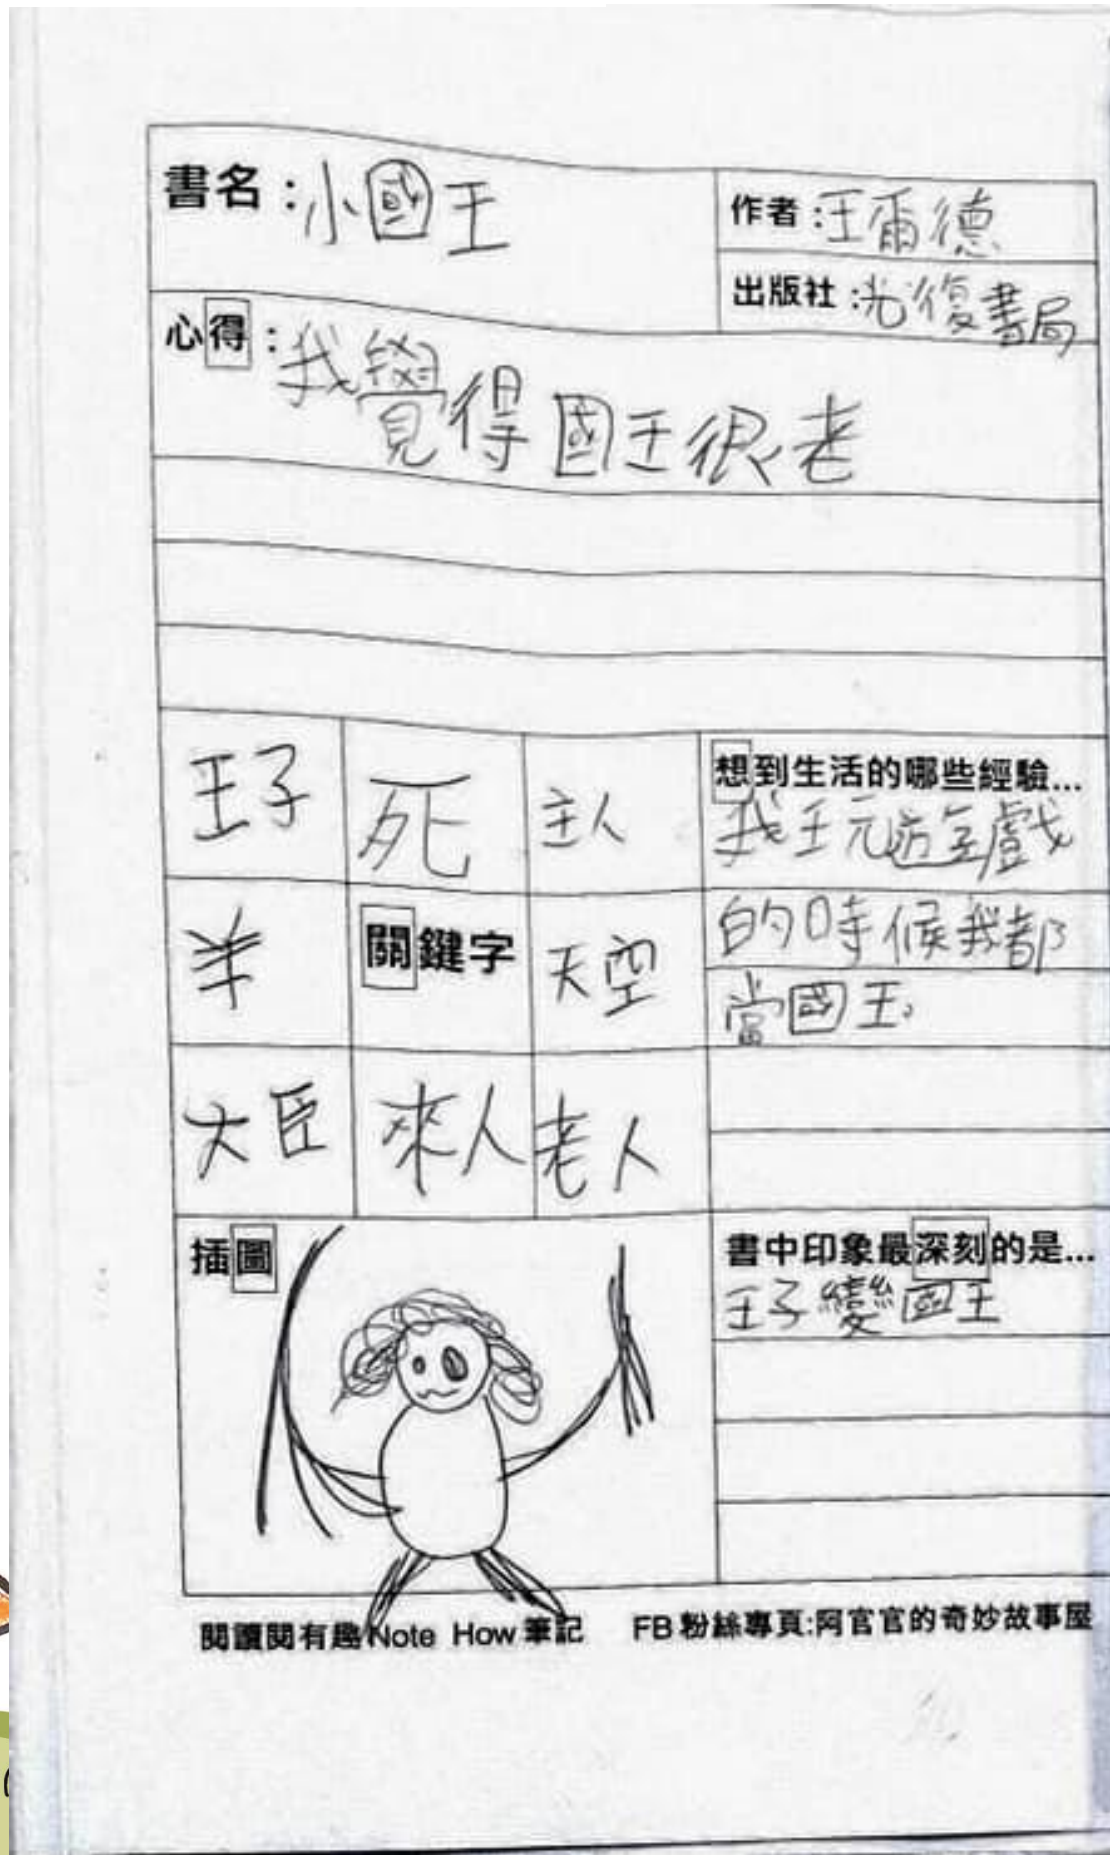 書名：小國王
作者：王爾德
出版社：光復書局
心得：我覺得國王很老
王子 死 主人
羊 關鍵字 天空
大臣 來人 老人
想到生活的哪些經驗...
我王元遊戲
的時候我都
當國王。
插圖
書中印象最深刻的是...
王子變國王
閱讀閱有趣Note How筆記 FB粉絲專頁:阿官官的奇妙故事屋